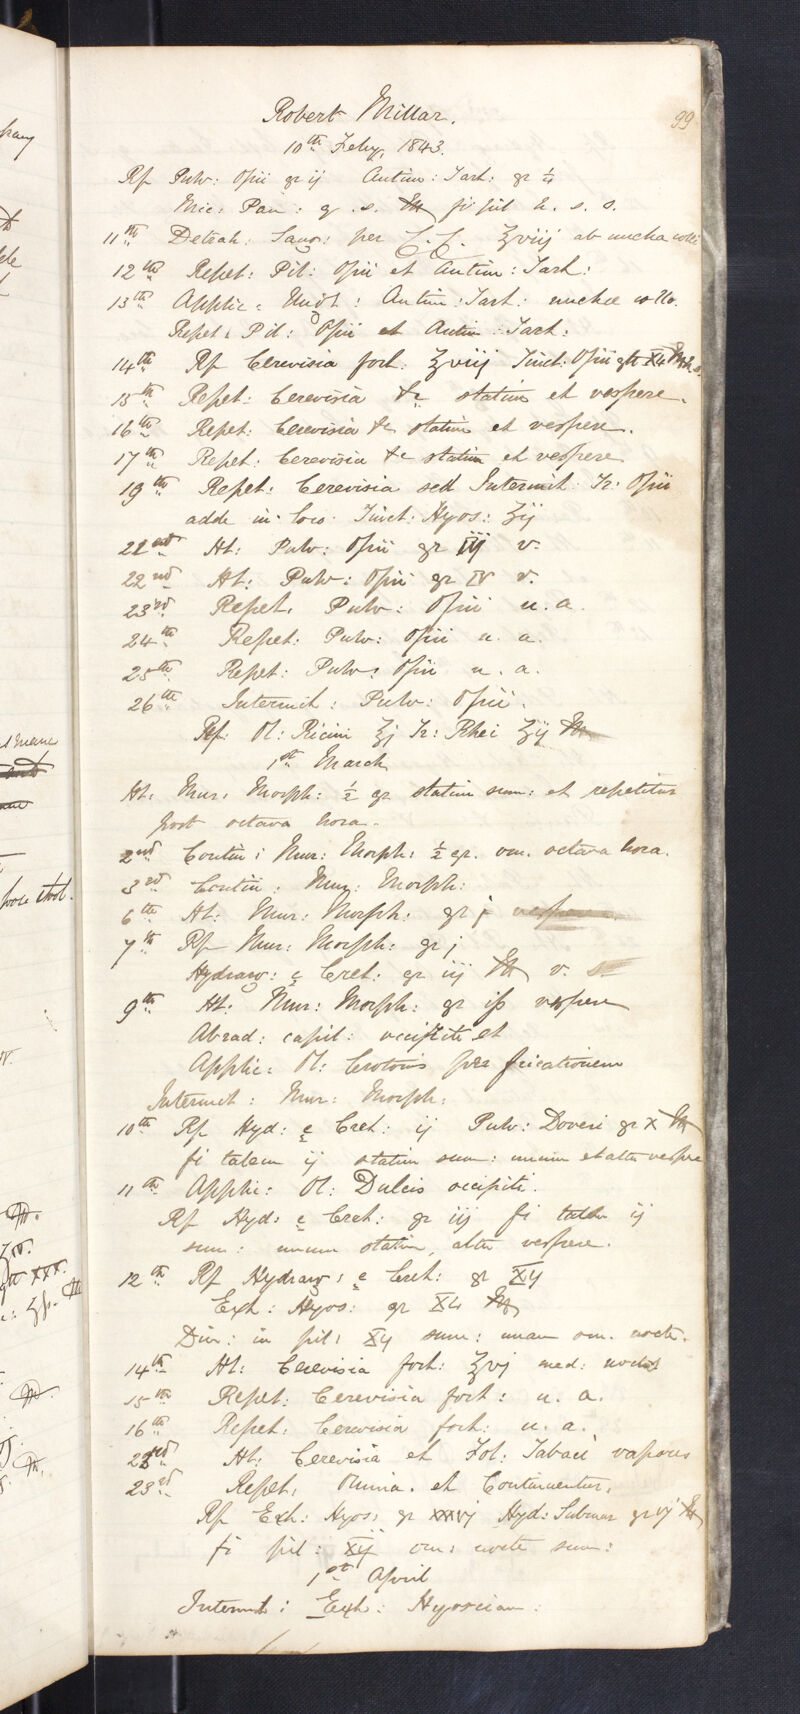 Robert Millar.
99
10th Feby, 1843.
Rp Pulv: Opii gr ij Antim: Tart: gr ¼
Mic: Pan: q. s. ft pil h. s. s.
11th Detrah: Sang: per C.C. ℥viij ab nucha colli
12th Repet: Pil: Opii et Antim: Tart:
13th Applic: Ungt: Antim: Tart: nuchæ collo.
Repet: Pil: Opii et Antim: Tart:
14th Rp Cerevisia fort: ℥viij Tinct: Opii gtt XL h.s.
15th Repet: Cerevisia &c statim et vespere.
16th Repet: Cerevisia &c statim et vespere.
17th Repet: Cerevisia &c statim et vespere
19th Repet: Cerevisia sed Intermit: Tr: Opii
adde in loco Tinct: Hyos: ʒij
21st Ht: Pulv: Opii gr iij v.
22nd Ht: Pulv: Opii gr IV v.
23rd Repet: Pulv: Opii u. a.
24th Repet: Pulv: Opii u. a.
25th Repet: Pulv: Opii u. a.
26th Intermit: Pulv: Opii.
Rp: Ol: Ricini ℥j Tr: Rhei ʒij
1st March
Ht: Mur: Morph: ½ gr statim sum: et repetitur
post octava hora.
2nd Contin: Mur: Morph: ½ gr. om. octava hora.
3rd Contin: Mur: Morph:
6th Ht: Mur: Morph: gr j vespere
7th Rp Mur: Morph: gr j
Hydrarg: c Cret: gr iij v. s.
9th Ht: Mur: Morph: gr iss vespere
Abrad: capil: occipite et
Applic: Ol: Crotonis per fricationem
Intermit: Mur: Morph:
10th Rp Hyd: c Cret: ij Pulv: Doveri gr X
fi talem ij statim sum: unum et alter vespere
11th Applic: Ol: Dulcis occipiti.
Rp Hyd: c Cret: gr iij fi talem ij
sum: unum statim, alter vespere.
12th Rp Hydrarg: c Cret: gr XIJ
Ext: Hyos: gr XL
Div: in pil: XIJ sum: unam om. nocte.
14th Ht: Cerevisia fort: ℥vj med: noctis
15th Repet: Cerevisia fort: u. a.
16th Repet: Cerevisia fort: u. a.
22nd Ht: Cerevisia et Fol: Tabaci vapores
23rd Repet: Omnia. et Continuentur.
Rp Ext: Hyos: gr xxxvj Hyd: Submur gr vj
fi pil: xij om: nocte sum:
1st April
Intermit: Ext: Hyosciam: